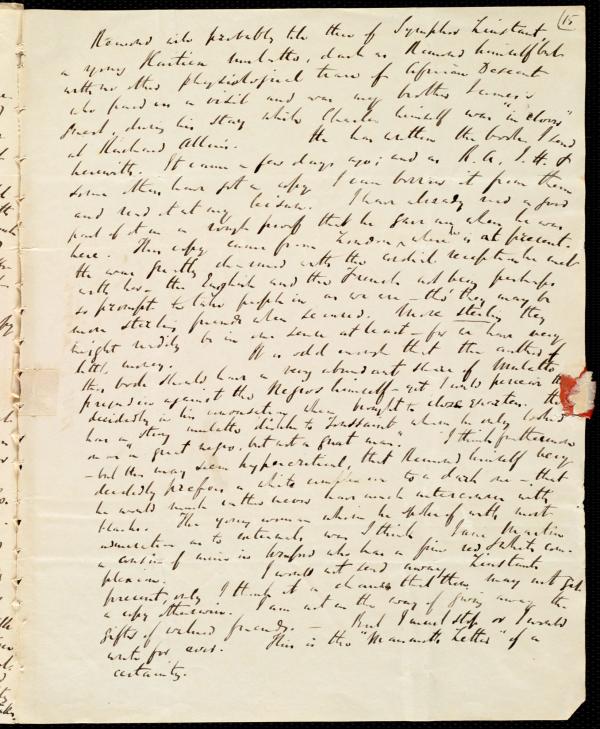 (15
Remond is probably the hero of Symphor Linstant,
a young Haitien mulatto, dark as Remond himself but
with no other physiological trace of African Descent
who paid us a visit and was my brother James's
guest, during his stay while Charles himself was "in clover"
at Richard Allen's. He has written the book I send
herewith. It came a few days ago; and as R. A., J. H. &
some others have got a copy I can borrow it from them
and read it at my leisure. I have already read a good
part of it in a rough proof that he gave me when he was
here. This copy came from London, where he is at present.
He was greatly charmed with the cordial reception he met
with here – the English and the French not being perhaps
so prompt to take people in as we are – tho' they may be
more sterling friends when secured. More sterling they
might readily be in one sense at least – for we have very
little money. It is odd enough that the author of
this book should have a very abundant share of Mulatto
prejudice against the Negroes himself – yet I could perceive this
decidedly in his conversation when brought to close quarters. He
has a strong mulatto dislike to Toussaint whom he only looked
on as "a great negro, but not a great man." I think furthermore
– but this may seem hypercritical, that Remond himself very
decidedly prefers a white complexion to a dark one – that
he would much rather never have much intercourse with
blacks. The young woman whom he spoke of with most
admiration as to externals was I think Jane Martin
a cousin of mine in Wexford who has a fine red & white com-
plexion. I would not send away Linstant's
present, only I think it a chance that you may not get
a copy otherwise. I am not in the way of giving away the
gifts of valued friends. – But I must stop or I would
write for ever. This is the "Mammoth Letter" of a
certainty.